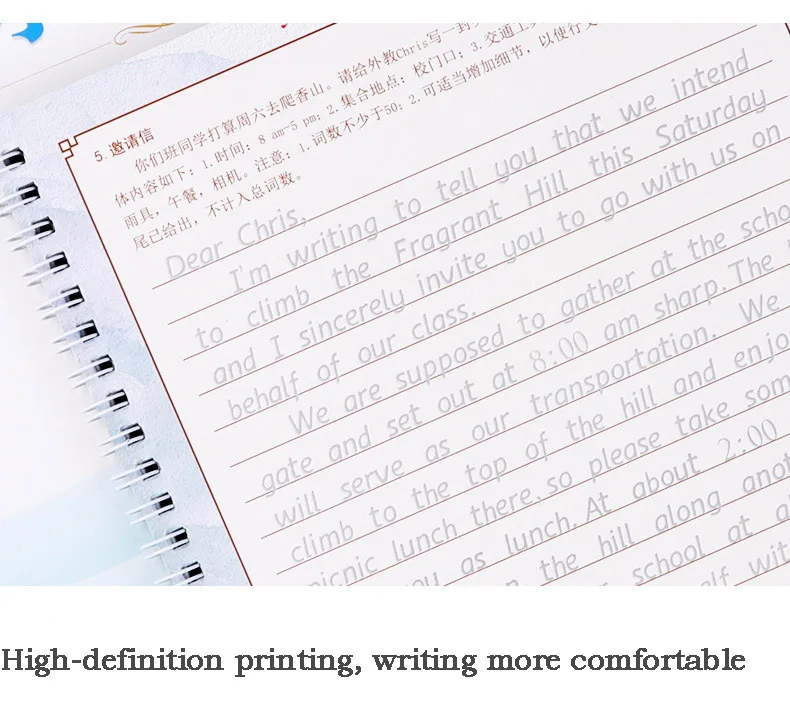 5. 邀请信
你们班同学打算周六去爬香山。请给外教Chris写一封
体内容如下：1.时间：8 am-5 pm；2.集合地点：校门口；3.交通工
雨具，午餐，相机。注意：1.词数不少于50；2.可适当增加细节，以使行文
尾已给出，不计入总词数。
Dear Chris,
I'm writing to tell you that we intend
to climb the Fragrant Hill this Saturday
and I sincerely invite you to go with us on
behalf of our class.
We are supposed to gather at the scho
gate and set out at 8:00 am sharp. The
will serve as our transportation. We
climb to the top of the hill and enjo
picnic lunch there, so please take som
you as lunch. At about 2:00
the hill along anot
school at a
elf wit
High-definition printing, writing more comfortable